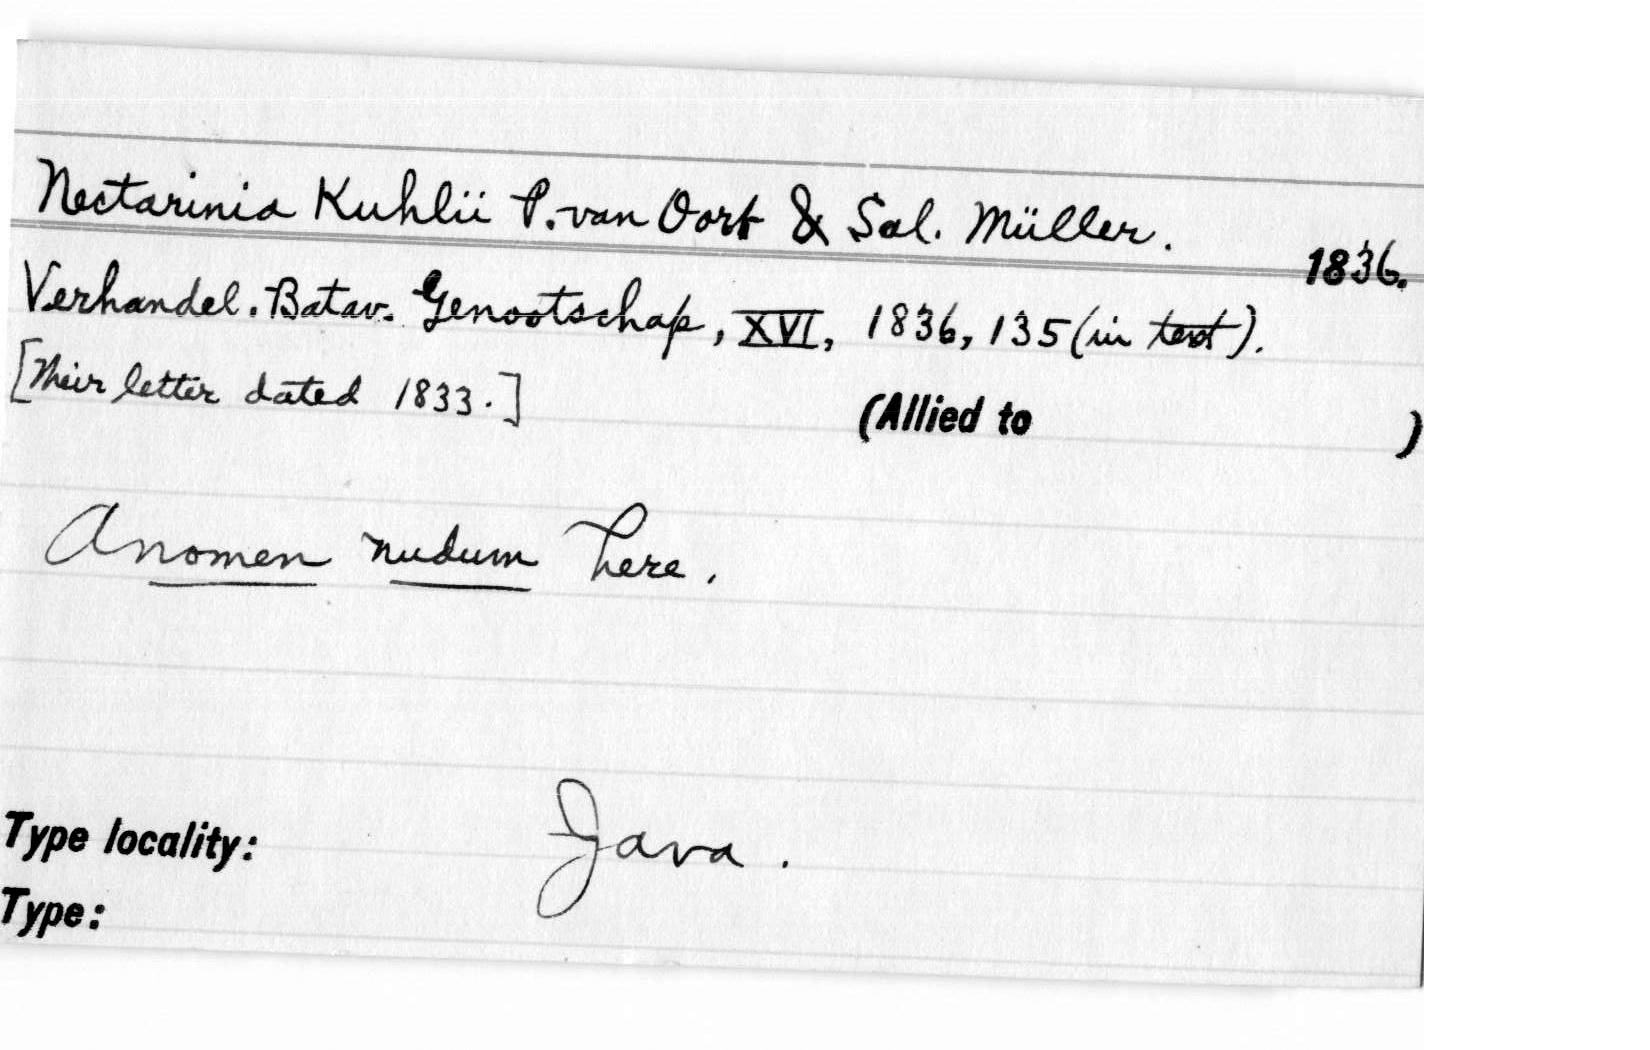 Nectarinia Kuhlii P. van Oort & Sal. Müller.
1836.
Verhandel. Batav. Genootschap, XVI, 1836, 135 (in text).
[Their letter dated 1833.]
(Allied to )
A nomen nudum here.
Type locality: Java.
Type: